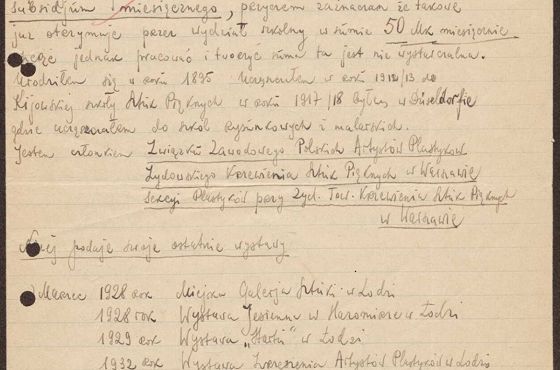 subsidjum miesięcznego, przyczem zaznaczam że takowe
już otrzymuję przez wydział szkolny w sumie 50 Mk miesięcznie
jednak pracować i tworzyć suma ta jest nie wystarczalna.
Urodziłem się w roku 1895 uczęszczałem w roku 1912/13 do
Kijowskiej szkoły Sztuk Pięknych w roku 1917/18 byłem w Düsseldorfie
gdzie uczęszczałem do szkół rysunkowych i malarskich.
Jestem członkiem Związku Zawodowego Polskich Artystów Plastyków
Żydowskiego Krzewienia Sztuk Pięknych w Warszawie
Sekcji Plastyków przy Żyd. Tow. Krzewienia Sztuk Pięknych
w Warszawie
podaję swoje ostatnie wystawy
Marzec 1928 rok Miejska Galerja Sztuki w Łodzi
1928 rok Wystawa Jesienna w Łodzi
1929 rok Wystawa "Startu" w Łodzi
1932 rok Wystawa Zrzeszenia Artystów Plastyków w Łodzi